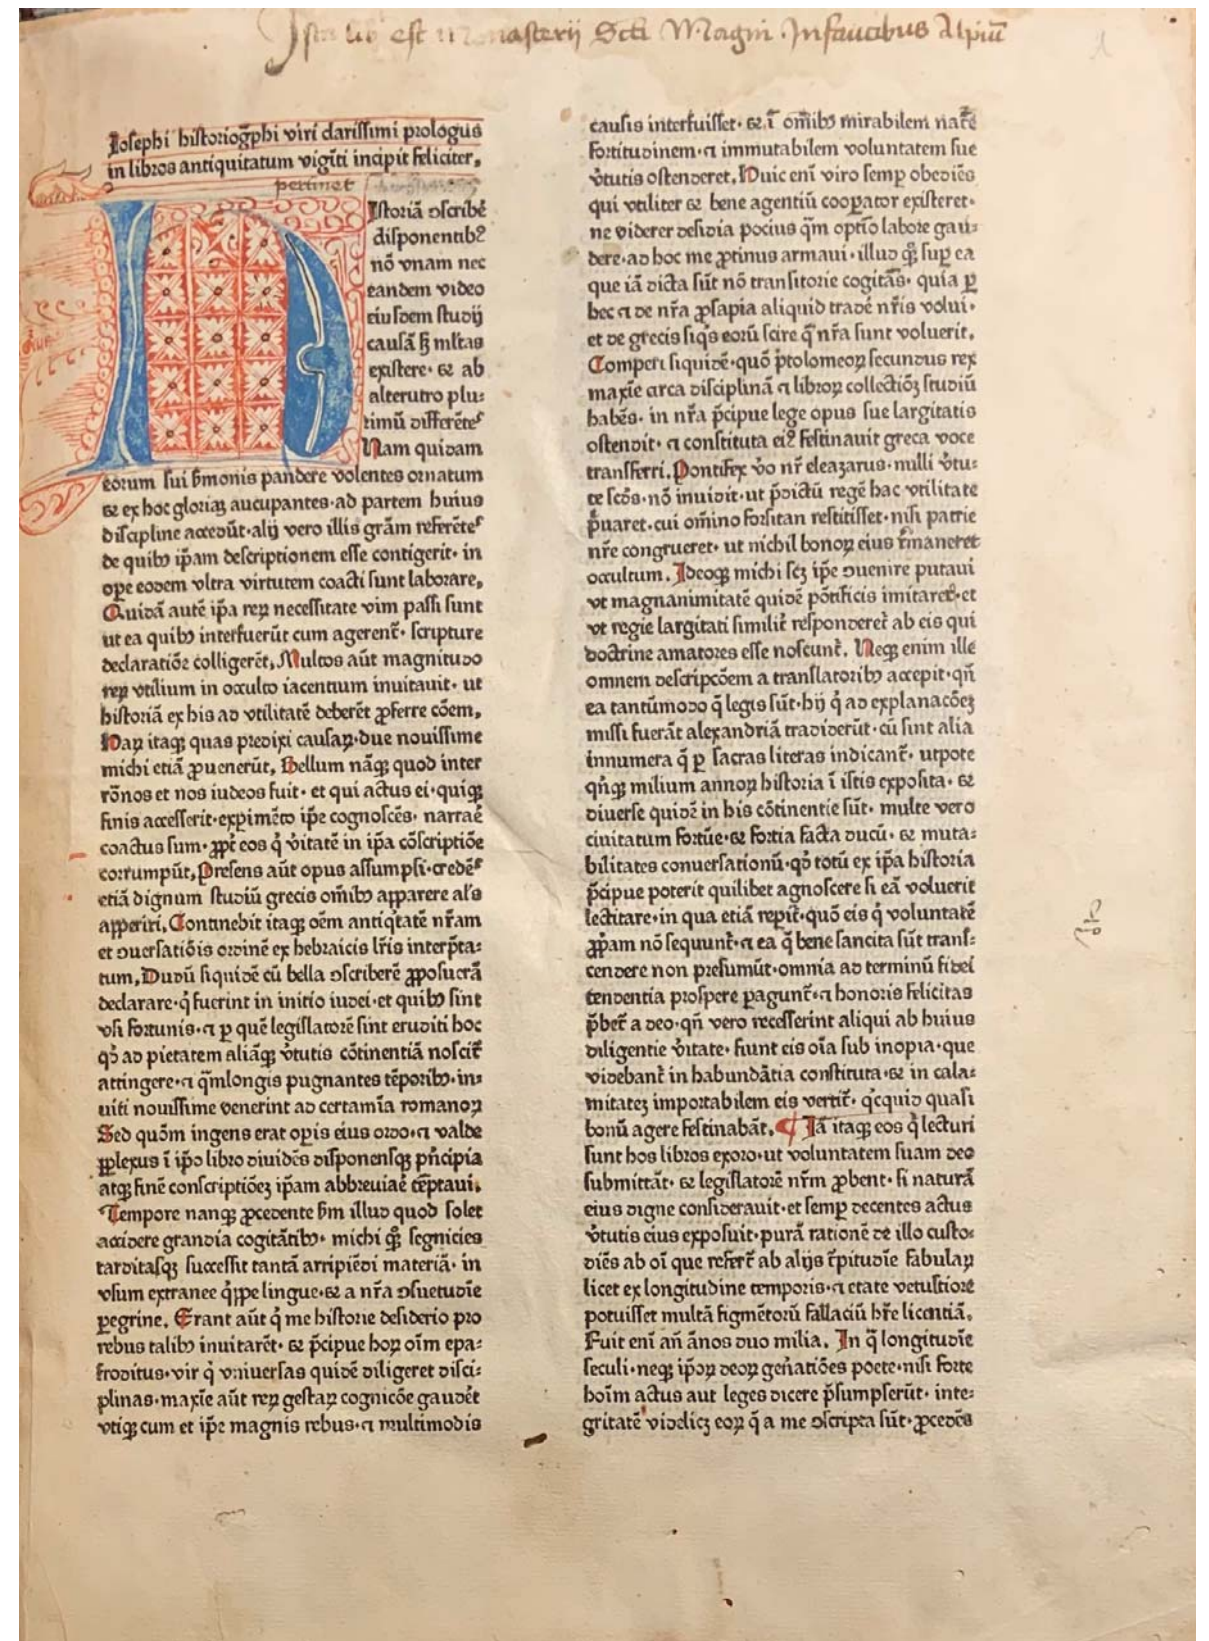 Iste lib est monasterij Scti Magni Infaucibus Alpiū
Iosephi historiogꝑphi viri clarissimi prologus
in libros antiquitatum vigīti incipit feliciter.
pertinet
Istoriā ↄscribe͛
disponentibꝰ
nō vnam nec
eandem video
eiusdem studij
causā sꝫ ml̄tas
existere· et ab
alterutro plu⸗
rimū differēteˢ
Nam quidam
eorum sui s̄monis pandere volentes ornatum
et ex hoc gloriaꝫ aucupantes·ad partem huius
discipline accedūt·alij vero illis grām referēteˢ
de quibꝰ ip̄am descriptionem esse contigerit· in
oꝑe eodem vltra virtutem coacti sunt laborare.
Quidā autē ip̄a reꝝ necessitate vim passi sunt
ut ea quibꝰ interfuerūt cum agerent̄· scripture
declaratiōe colligerēt. Multos aūt magnitudo
reꝝ vtilium in occulto iacentium inuitauit· ut
historiā ex his ad vtilitatē deberēt ꝓferre cōem.
Haꝝ itaqꝫ quas predixi causaꝝ·due nouissime
michi etiā ꝓuenerūt. Bellum nāqꝫ quod inter
rōnos et nos iudeos fuit· et qui actus ei·quiqꝫ
finis accesserit·expimēto ip̄e cognoscēs· narrae͛
coactus sum·ꝓpt̄ eos q̇ v̇itatē in ip̄a cōscriptiōe
corrumpūt. Presens aūt opus assumpsi·credēˢ
etiā dignum studiū grecis om̄ibꝰ apparere al's
apperiri. Continebit itaqꝫ oēm antiq̇tatē nr̄am
et ↄuersatiōis ordinē ex hebraicis lr̄is interp̄ta⸗
tum. Dudū siquidē cū bella ↄscriberē ꝓposuerā
declarare·q̇ fuerint in initio iudei·et quibꝰ sint
vsi fortunis·ꝛ ꝑ quē legislatorē sint eruditi hoc
qd̓ ad pietatem aliāqꝫ v̓tutis cōtinentiā noscit̄
attingere·ꝛ q̄mlongis pugnantes tēporibꝰ·in⸗
uiti nouissime venerint ad certamīa romanoꝝ
Sed quōm ingens erat opis eius ordo·ꝛ valde
ꝑplexus ī ip̄o libro diuidēs disponensqꝫ pn̄cipia
atqꝫ finē conscriptiōeꝫ ip̄am abbreuiae͛ tēptaui.
Tempore nanqꝫ ꝓcedente s̄m illud quod solet
accidere grandia cogitātibꝰ· michi qꝫ̊ segnicies
tarditasqꝫ successit tantā arripiēdi materiā· in
vsum extranee q̇ppe lingue·et a nr̄a ↄsuetudīe
ꝑegrine. Erant aūt q̇ me historie desiderio pro
rebus talibꝰ inuitarēt· et p̄cipue hoꝝ oīm epa⸗
froditus·vir q̇ vniuersas quidē diligeret disci⸗
plinas·maxīe aūt reꝝ gestaꝝ cognicōe gaudēt
vtiqꝫ cum et ip̄e magnis rebus·ꝛ multimodis
causis interfuisset· et ī om̄ibꝰ mirabilem nate͛
fortitudinem·ꝛ immutabilem voluntatem sue
v̓tutis ostenderet. Huic enī viro semꝑ obediēs
qui vtiliter et bene agentiū cooꝑator existeret·
ne viderer desidia pocius q̄m optīo labore gau⸗
dere·ad hoc me ꝓtinus armaui·illud qꝫ̊ suꝑ ea
que iā dicta sūt nō transitorie cogitās· quia ꝑ
hec ꝛ de nr̄a ꝓsapia aliquid trade͛ nr̄is volui·
et de grecis siq̇s eorū scire q̄ nr̄a sunt voluerit.
Comperi siquidē·quō ptolomeoꝝ secundus rex
maxīe circa disciplinā ꝛ libroꝝ collectiōeꝫ studiū
habēs· in nr̄a p̄cipue lege opus sue largitatis
ostendit· ꝛ constituta eiꝰ festinauit greca voce
transferri. Pontifex v̓o nr̄ eleazarus·nulli v̓tu⸗
te scd̓s·nō inuidit·ut p̄dictū regē hac vtilitate
p̄uaret·cui om̄ino forsitan restitisset·nisi patrie
nr̄e congrueret· ut nichil bonoꝝ eius r̄maneret
occultum. Ideoqꝫ michi scꝫ ip̄e ↄuenire putaui
vt magnanimitatē quidē pōtificis imitarer·et
vt regie largitati similit̄ responderet̄ ab eis qui
doctrine amatores esse noscunt̄. Neqꝫ enim ille
omnem descripcōem a translatoribꝰ accepit·qn̄
ea tantūmodo q̄ legis sūt·hij q̇ ad explanacōeꝫ
missi fuerāt alexandriā tradiderūt·cū sint alia
innumera q̄ ꝑ sacras literas indicant̄· utpote
qn̄qꝫ milium annoꝝ historia ī istis exposita· et
diuerse quidē in his cōtinentie sūt· multe vero
ciuitatum fortūe·et fortia facta ducū· et muta⸗
bilitates conuersationū·qd̓ totū ex ip̄a historia
p̄cipue poterit quilibet agnoscere si eā voluerit
lectitare·in qua etiā repit̄·quō eis q̇ voluntatē
ꝓpam nō sequunt̄·ꝛ ea q̄ bene sancita sūt trans⸗
cendere non presumūt·omnia ad terminū fidei
tendentia prospere pagunt̄·ꝛ honoris felicitas
p̄bet̄ a deo·qn̄ vero recesserint aliqui ab huius
diligentie v̓itate· fiunt eis oīa sub inopia·que
videbant̄ in habundātia constituta·et in cala⸗
mitateꝫ importabilem eis vertit̄· q̇cquid quasi
bonū agere festinabāt. ¶ Iā itaqꝫ eos q̇ lecturi
sunt hos libros exoro·ut voluntatem suam deo
submittāt· et legislatorē nr̄m ꝓbent· si naturā
eius digne considerauit·et semꝑ decentes actus
v̓tutis eius exposuit·purā rationē de illo custo⸗
diēs ab oī que refert̄ ab alijs t̄pitudīe fabulaꝝ
licet ex longitudine temporis·ꝛ etate vetustiore
potuisset multā figmētorū fallaciū hr̄e licentiā.
Fuit enī añ ānos duo milia. In q̄ longitudīe
seculi·neqꝫ ip̄oꝝ deoꝝ gen̄atiōes poete·nisi forte
hoīm actus aut leges dicere p̄sumpserūt· inte⸗
gritatē videlicꝫ eoꝝ q̄ a me ↄscripta sūt·ꝓcedēs